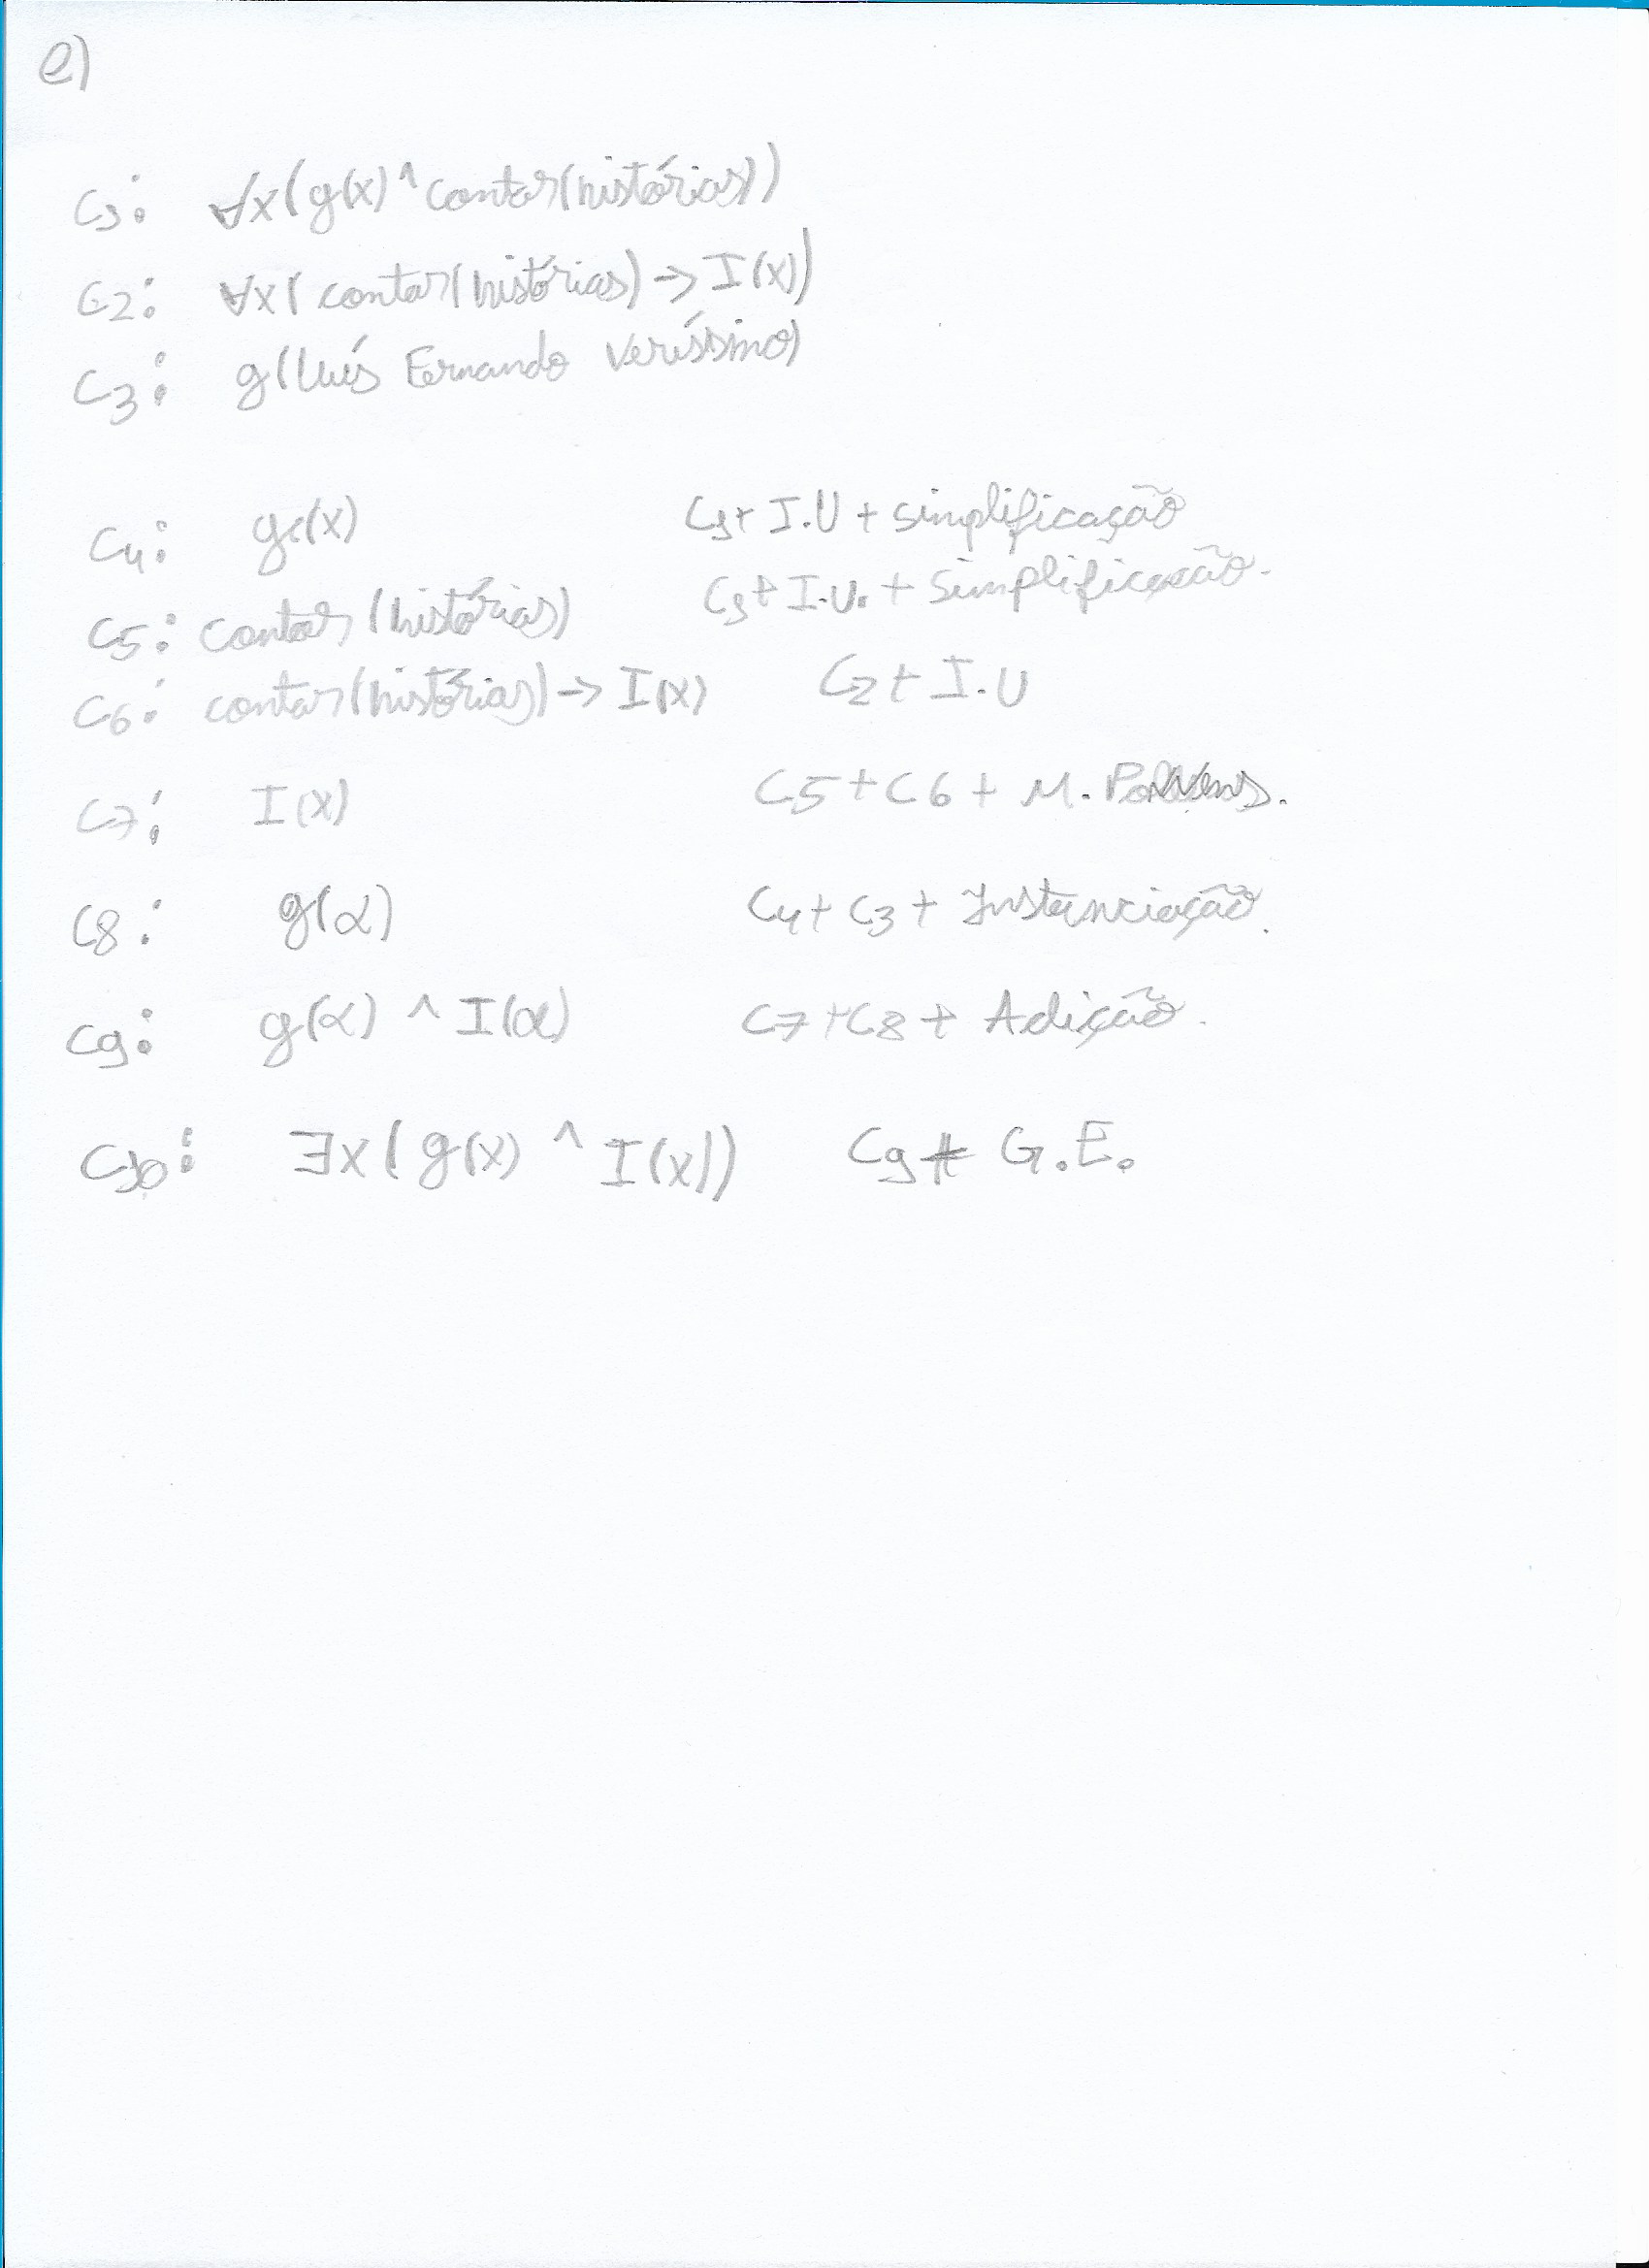 e)
C1: ∀x(g(x) ^ contar(histórias))
C2: ∀x(contar(histórias) -> I(x))
C3: g(Luís Fernando Veríssimo)
C4: g(x) C1 + I.U + simplificação
C5: contar(histórias) C1 + I.U. + simplificação.
C6: contar(histórias) -> I(x) C2 + I.U
C7: I(x) C5 + C6 + M.
C8: g(α) C4 + C3 + Instanciação.
C9: g(α) ^ I(α) C7 + C8 + Adição.
C10: ∃x(g(x) ^ I(x)) C9 + G.E.